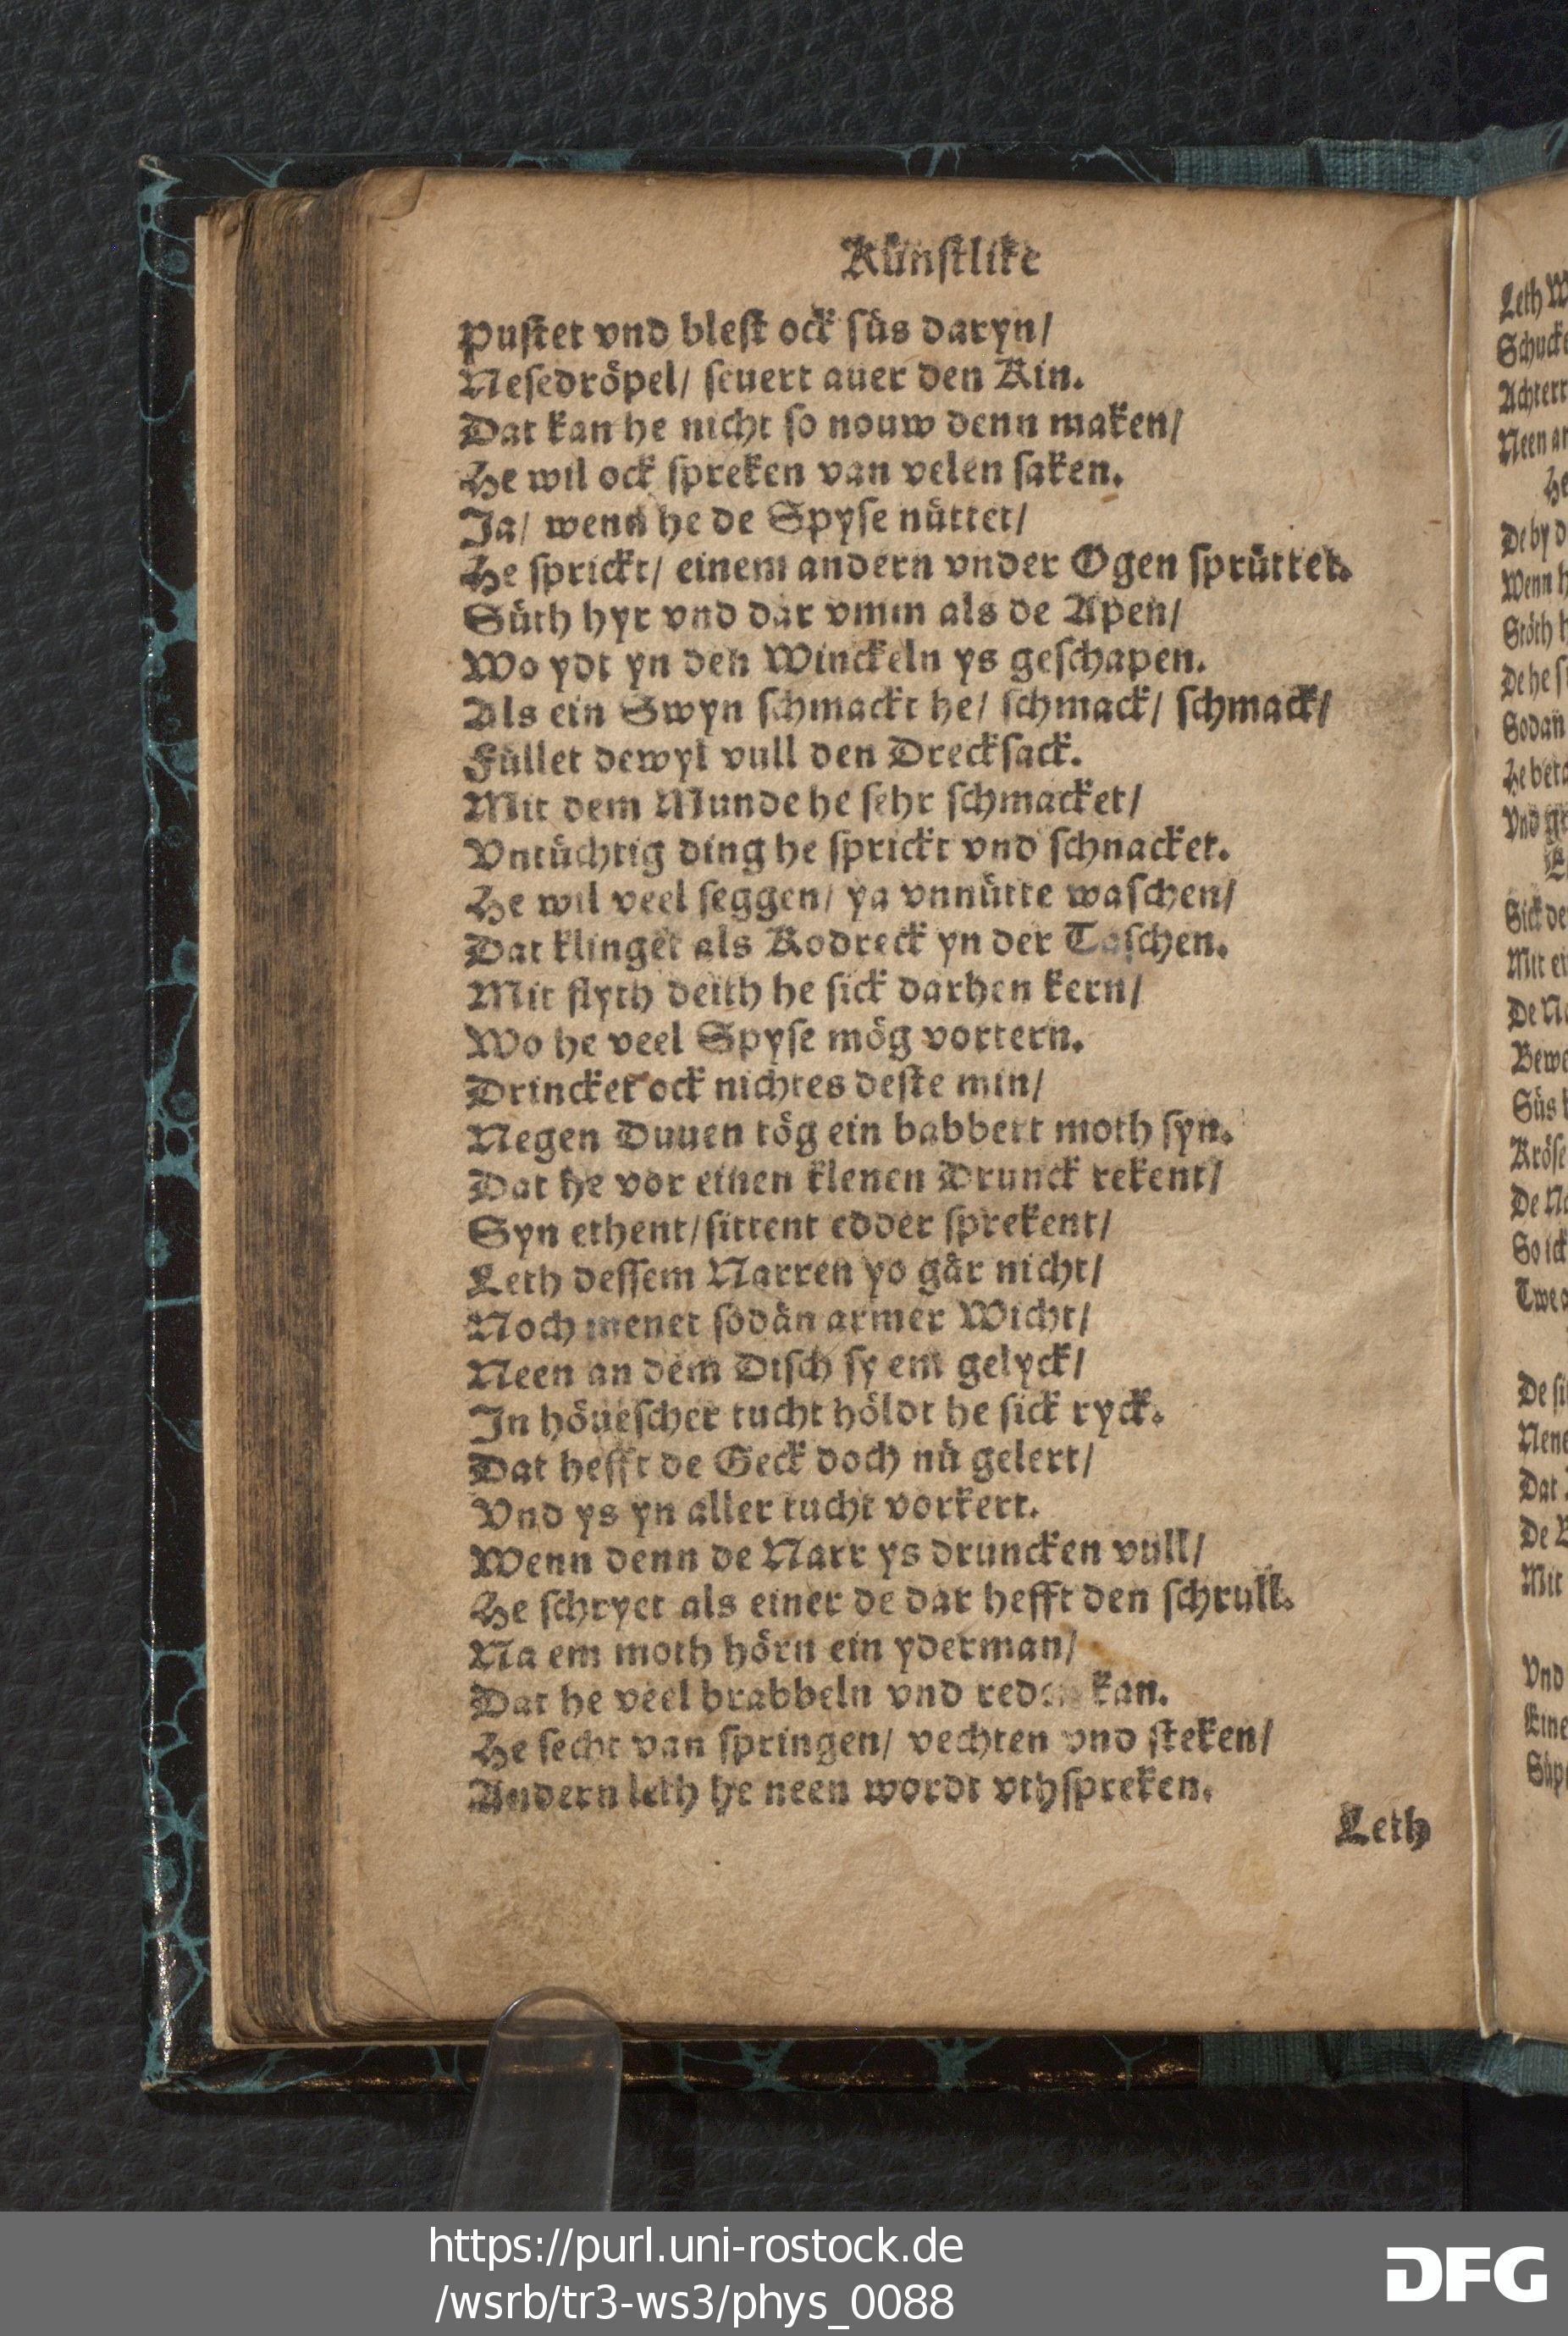 Künſtlike
Puſtet vnd bleſt ock ſüs daryn/
Neſedröpel/ ſeuert auer den Kin.
Dat kan he nicht ſo nouw denn maken/
He wil ock ſpreken van velen ſaken.
Ja/ wenn he de Spyſe nüttet/
He sprickt/ einem andern vnder Ogen ſprüttet.
Süth hyr vnd dar vmm als de Apen/
Wo ydt yn den Winckeln ys geſchapen.
Als ein Swyn ſchmackt he/ ſchmack/ ſchmack/
Füllet dewyl vull den Dreckſack.
Mit dem Munde he ſehr ſchmacket/
Vntüchtig ding he ſprickt vnd ſchnacket.
He wil veel ſeggen/ ya vnnütte waſchen/
Dat klinget als Kodreck yn der Taſchen.
Mit flyth deith he ſick darhen kern/
Wo he veel Spyſe mög vortern.
Drincket ock nichtes deſte min/
Negen Duuen tög ein babbert moth ſyn.
Dat he vor einen klenen Drunck rekent/
Syn ethent/ ſittent edder ſprekent/
Leth deſſem Narren yo gär nicht/
Noch menet ſodän armer Wicht/
Neen an dem Diſch ſy em gelyck/
In höueſcher tucht höldt he ſick ryck.
Dat hefft de Geck doch nü gelert/
Vnd ys yn aller tucht vorkert.
Wenn denn de Narr ys druncken vull/
He ſchryet als einer de dar hefft den ſchrull.
Na em moth hörn ein yderman/
Dat he veel brabbeln vnd reden kan.
He ſecht van ſpringen/ vechten vnd ſteken/
Andern leth he neen wordt vthſpreken.
Leth
Leth
Schucke
Achterr
Neen an
He
De by d
Wenn h
Stöth h
De he ſ
Sodän
He beta
Vnd
Sick de
Mit ei
De Na
Bewe
Süs
Kröſe
De Na
So ick
Twe
De ſi
Nene
Dat
De
Mit
Vnd
Eine
Süp
https://purl.uni-rostock.de
/wsrb/tr3-ws3/phys_0088
DFG